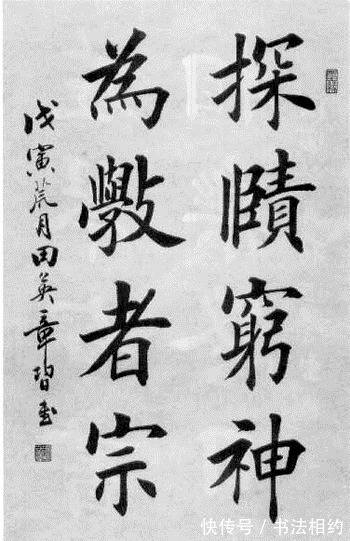 探賾窮神
為斆者宗
戊寅荒月田英章習書
快传号 / 书法相约